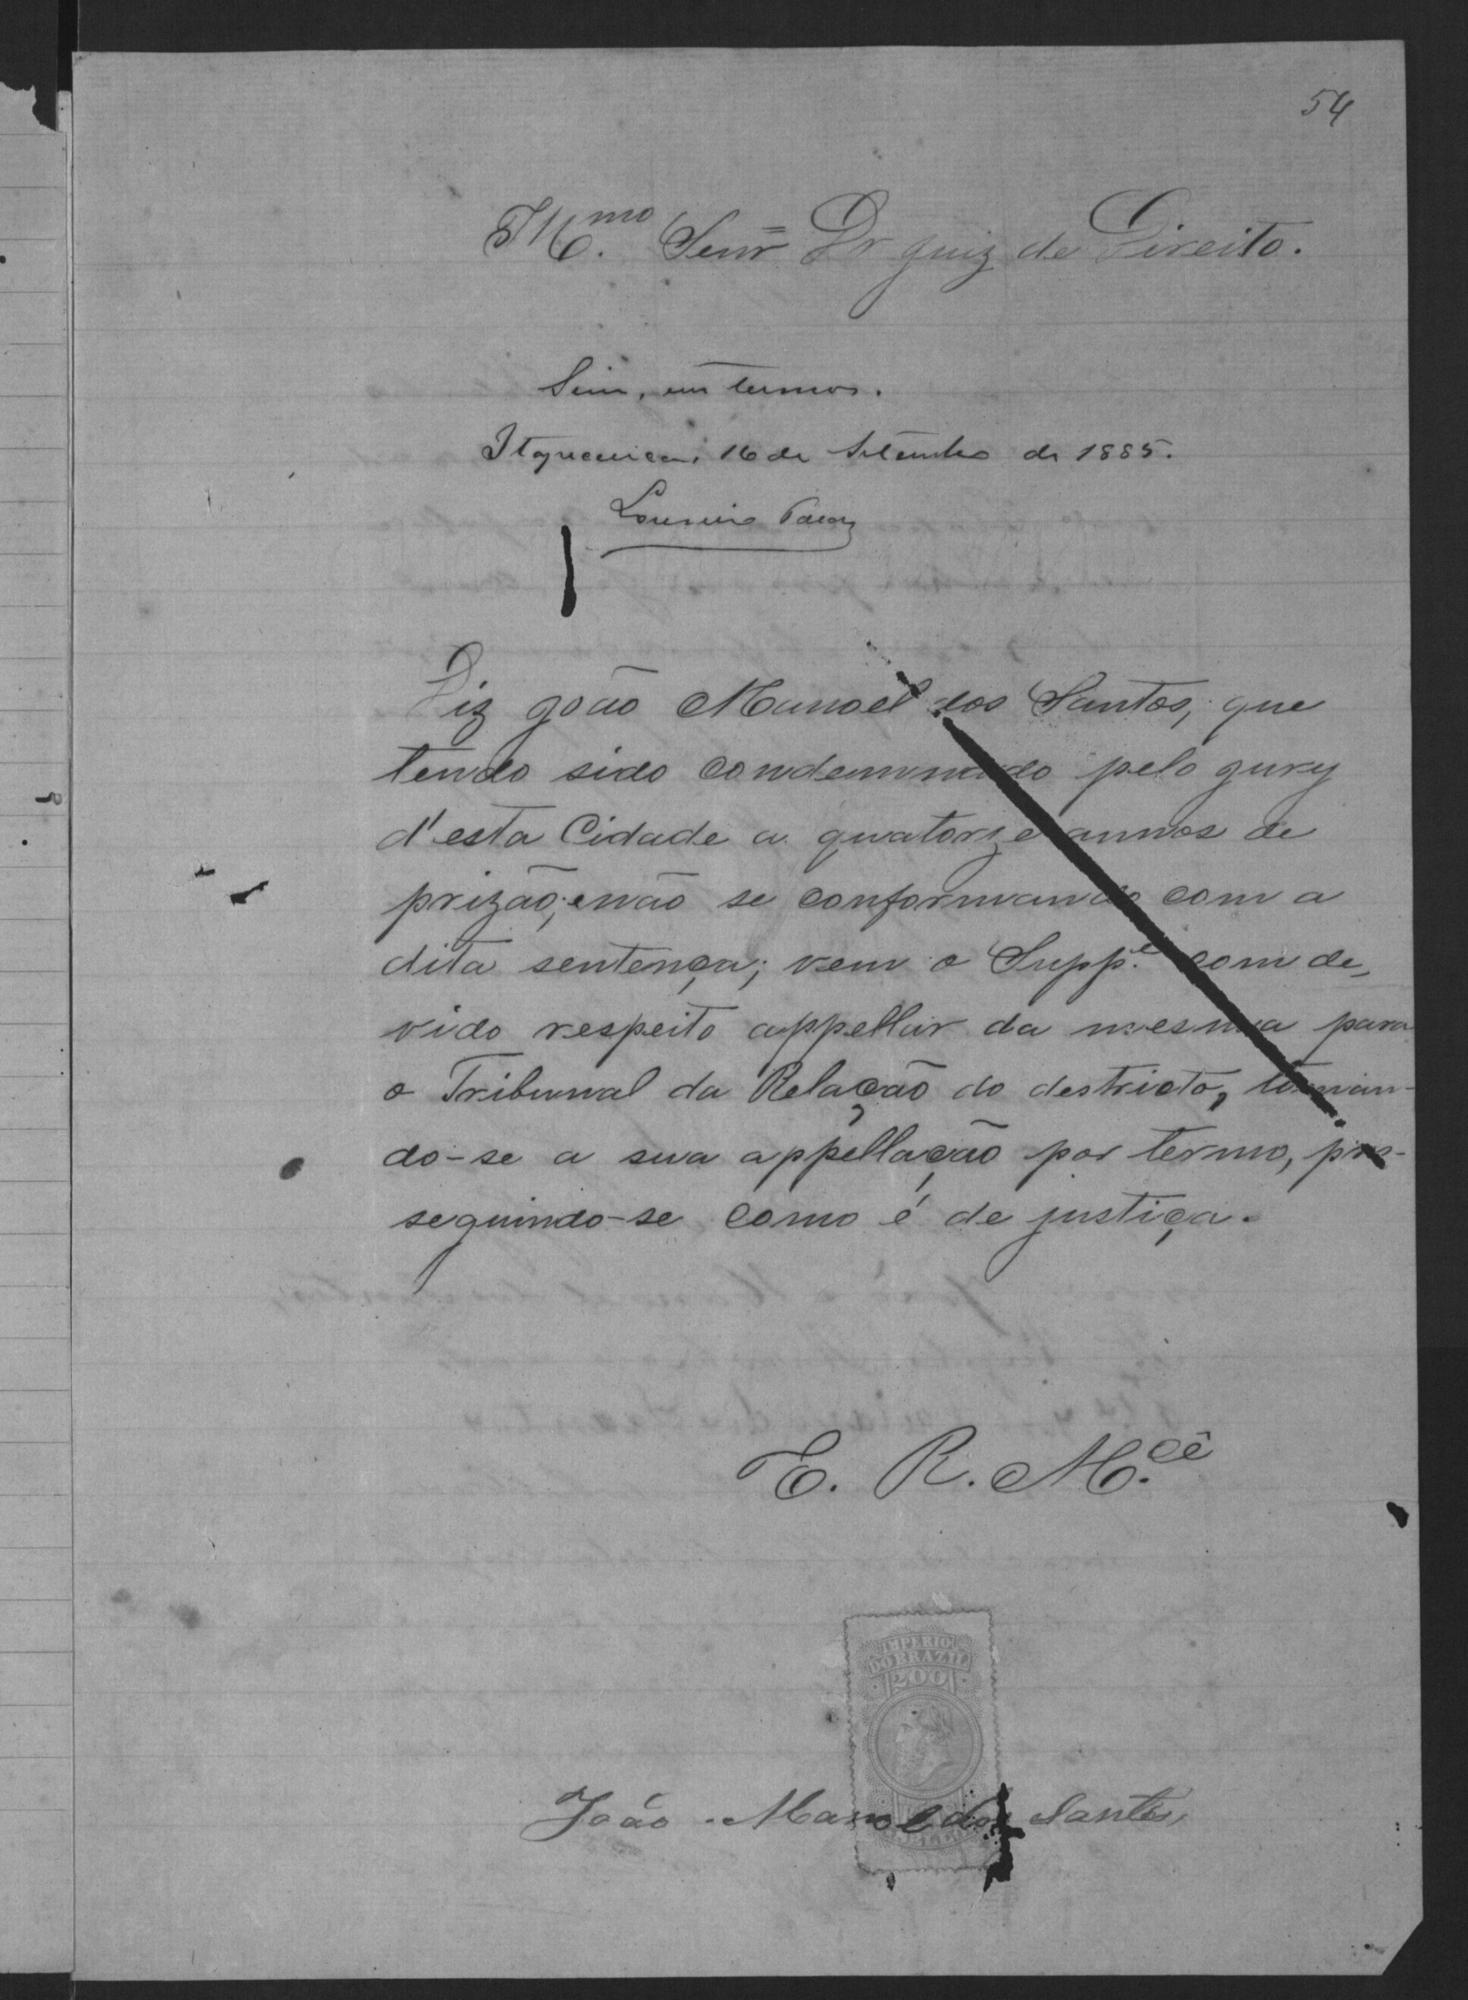 54
Illmo. Senr Dr Juiz de Direito.
Sim, em termos.
16 de Setembro de 1885.
Diz João Manoel dos Santos, que
tendo sido condemnado pelo jury
d'esta Cidade a quatorze annos de
prizão, e não se conformando com a
dita sentença; vem o Suppe. com de,
vido respeito appellar da mesma para
o Tribunal da Relação do destricto, toman-
do-se a sua appellação por termo, pro-
seguindo-se como é de justiça.
E. R. M.cê
IMPERIO
DO BRAZIL
200
João Manoel dos Santos